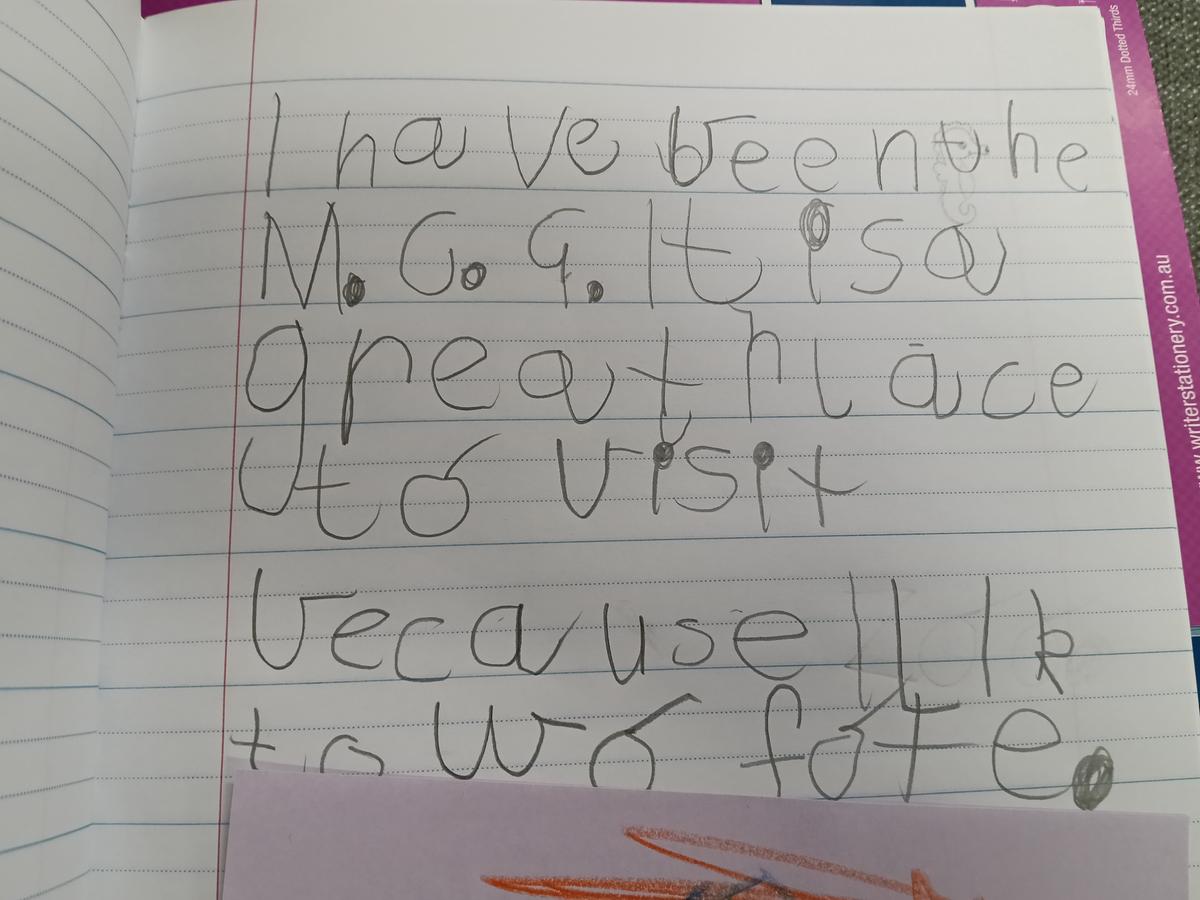 I have been the
M.C.G. It is a
great place
to visit
because I lik
to wo fote.
24mm Dotted Thirds
www.writerstationery.com.au